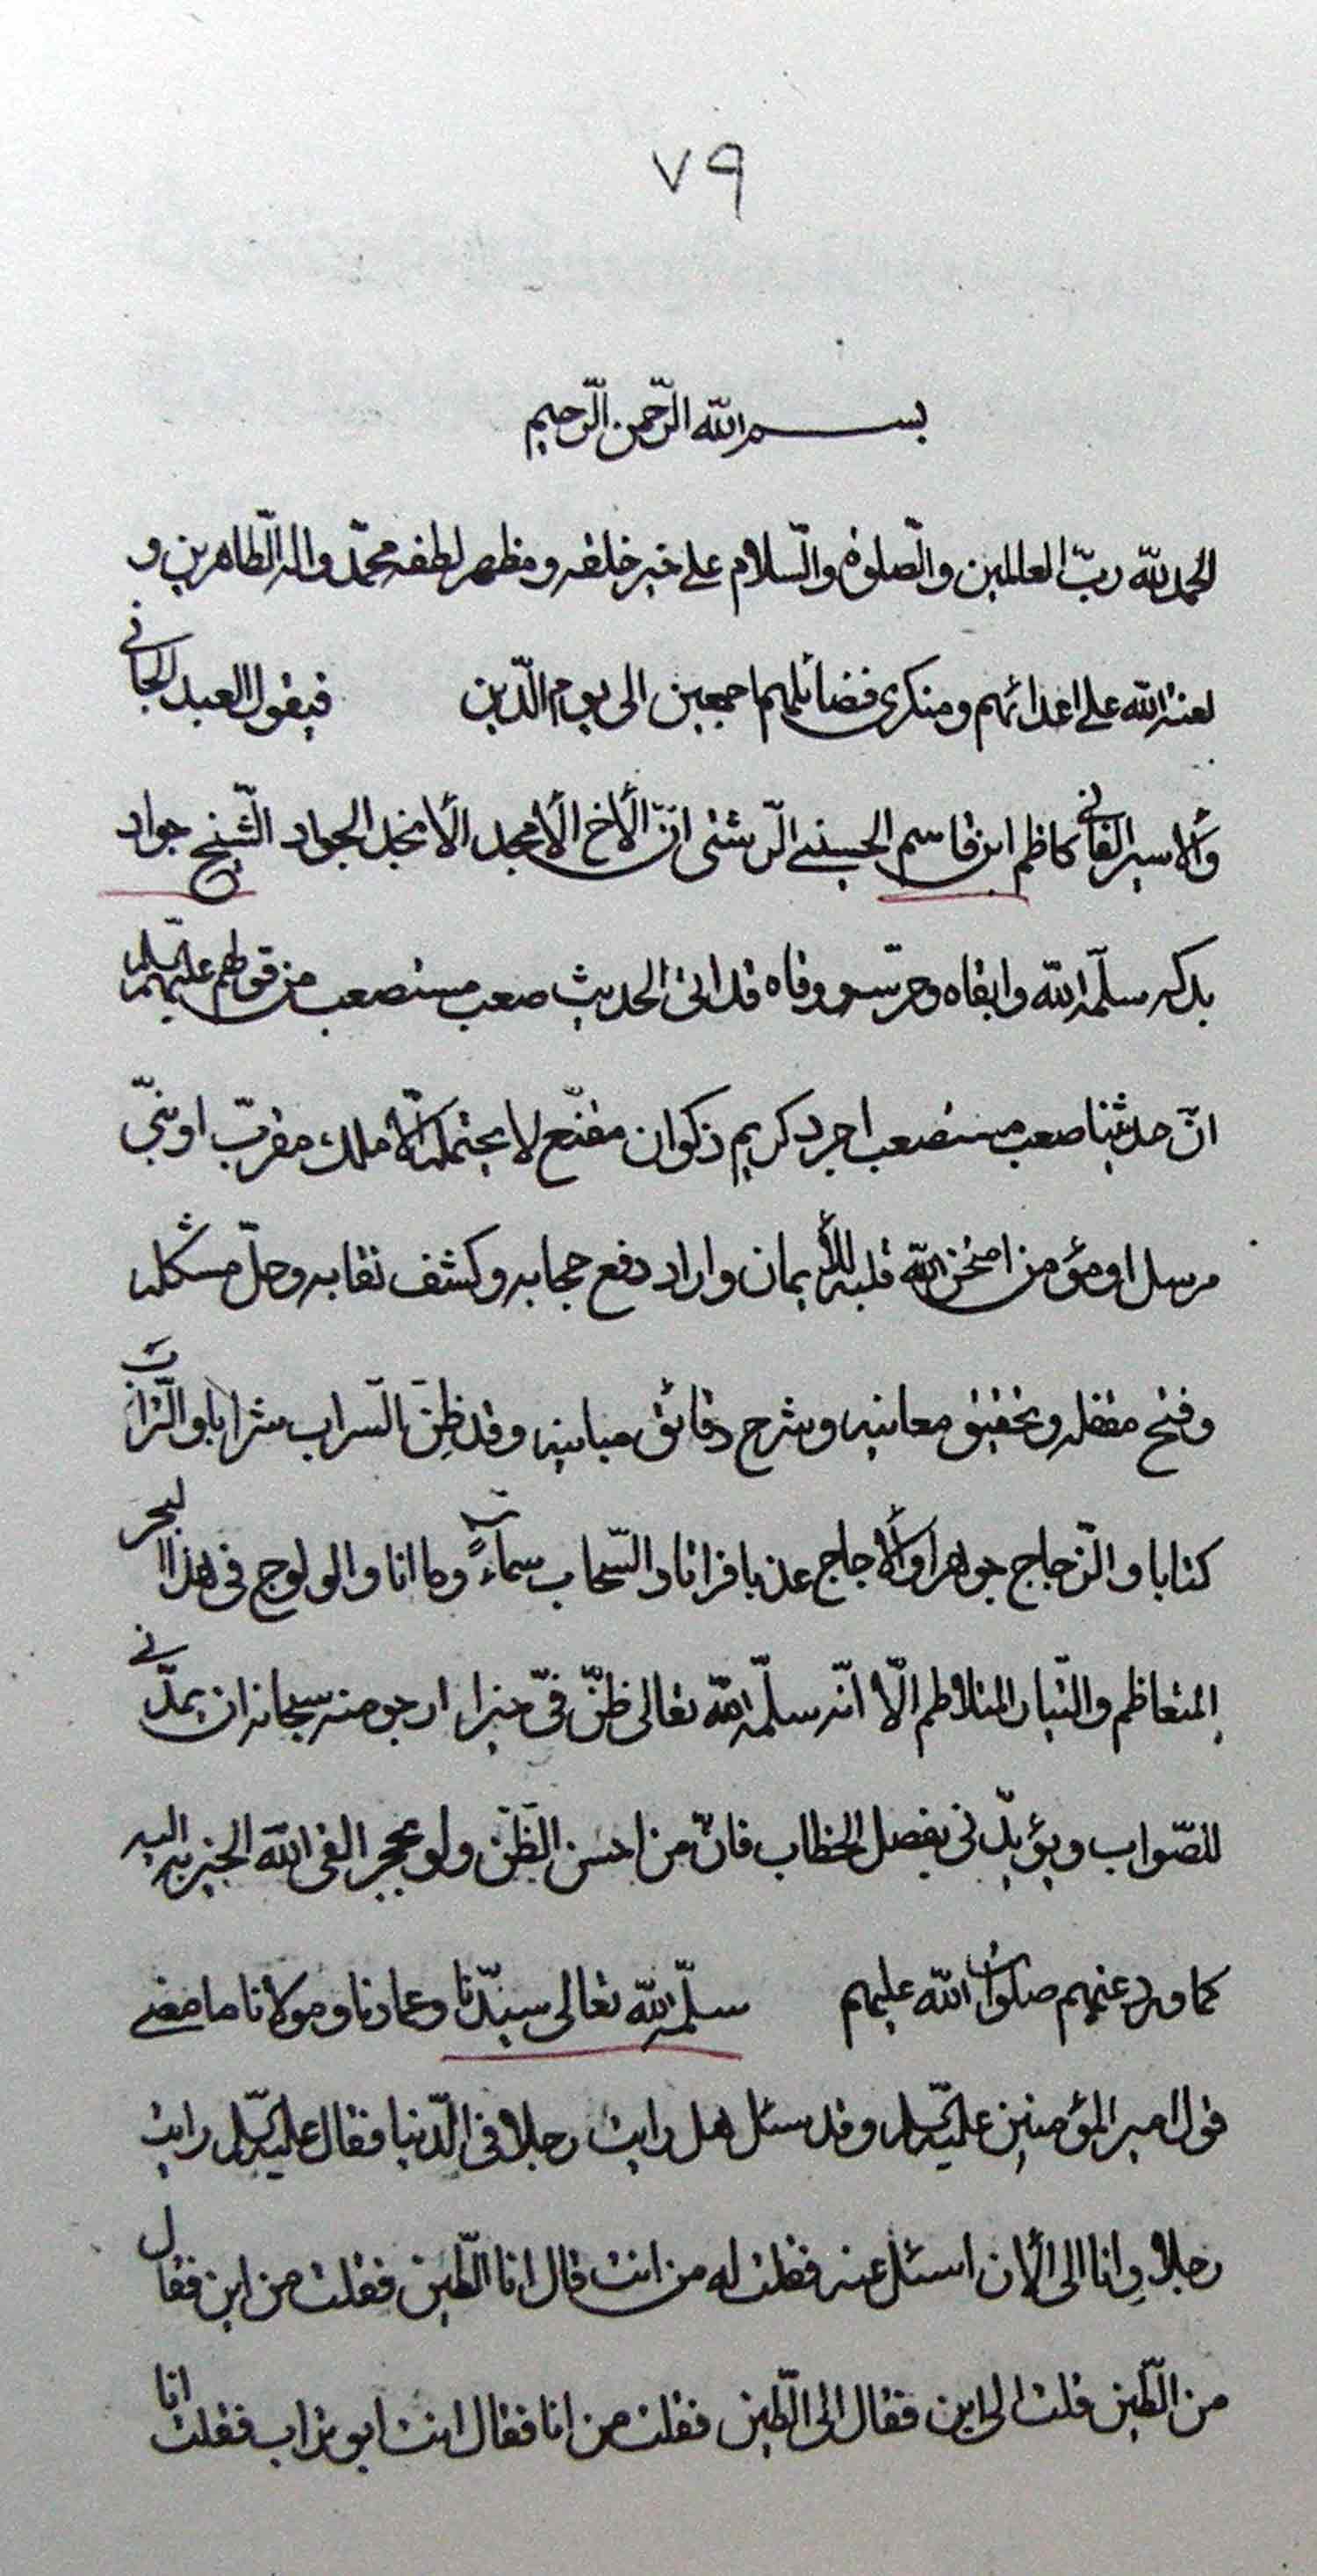 ٧٩
بسم الله الرّحمن الرّحيم
الحمد لله ربّ العالمين والصّلوة والسّلام على خير خلقه ومظهر لطفه محمّد واله الطّاهرين و
لعنة الله على اعدائهم ومنكرى فضائلهم اجمعين الى يوم الدّين فيقول العبد الجانى
والأسير الفانى كاظم ابن قاسم الحسينى الرّشتى انّ الأخ الأمجد الأنجد الجواد الشّيخ جواد
سلّمه الله وابقاه وحرسه ووقاه قد اتى الحديث صعب مستصعب من قولهم عليهم السلم
انّ حديثنا صعب مستصعب اجرد كريم ذكوان مقنّع لا يحتمله الّا ملك مقرّب او نبىّ
مرسل او مؤمن امتحن الله قلبه للأيمان واراد رفع حجابه وكشف نقابه وحلّ مشكله
وفتح مقفله وتحقيق معانيه وشرح دقائق مبانيه وقد ظنّ السراب شرابا والتراب
كتابا والزجاج جوهرا والأجاج عذبا فراتا والسّحاب سماءً وما انا والولوج فى هذا البحر
المتعاظم والتّيار المتلاطم الّا انّه سلّمه الله تعالى ظنّ فىّ خيرا ارجو منه سبحانه ان يمدّنى
للصّواب ويؤيّدنى بفصل الخطاب فانّ من احسن الظنّ ولو بحجر القى الله الخير اليه
كما ورد عنهم صلوات الله عليهم سلّمه الله تعالى سيّدنا وعمادنا ومولانا ما معنى
قول امير المؤمنين عليه السلم وقد سئل هل رايت رجلا فى الدّنيا فقال عليه السلم رايت
رجلا وانا الى الأن اسئل عنه فقلت له من انت قال انا الطّين فقلت من اين فقال
من الطّين قلت الى اين فقال الى الطّين فقلت من انا فقال انت ابو تراب فقلت انا